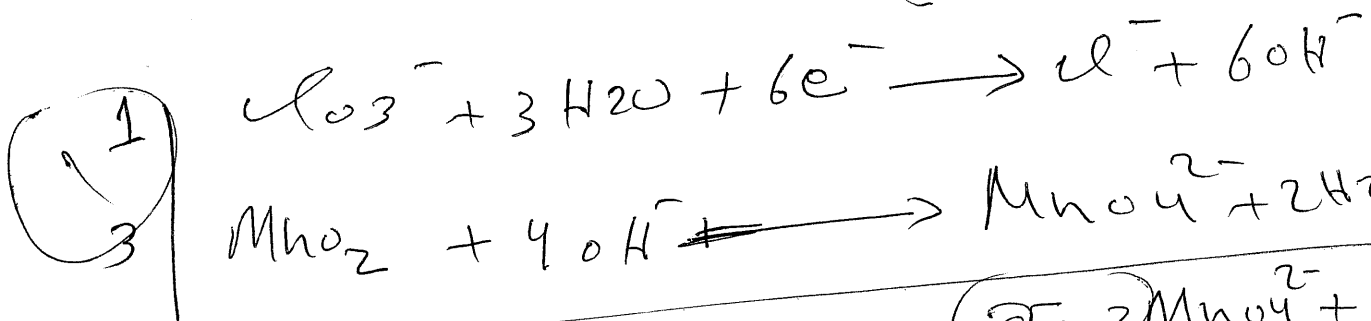 1 ClO3⁻ + 3 H2O + 6e⁻ → Cl⁻ + 6OH⁻
3 MnO2 + 4OH⁻ → MnO4²⁻ + 2H2
3MnO4²⁻ +